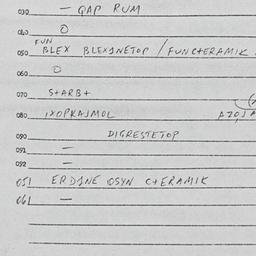 030 — QAP RUM
040 O
FUN
050 BLEX BLEXINETOP / FUNCTERAMIK
060 O
070 STARBT
080 IXOPKAJMOL
DIGRESTETOP
090
091 —
092 —
051 ERDINE OSYN CTERAMIK
061 —